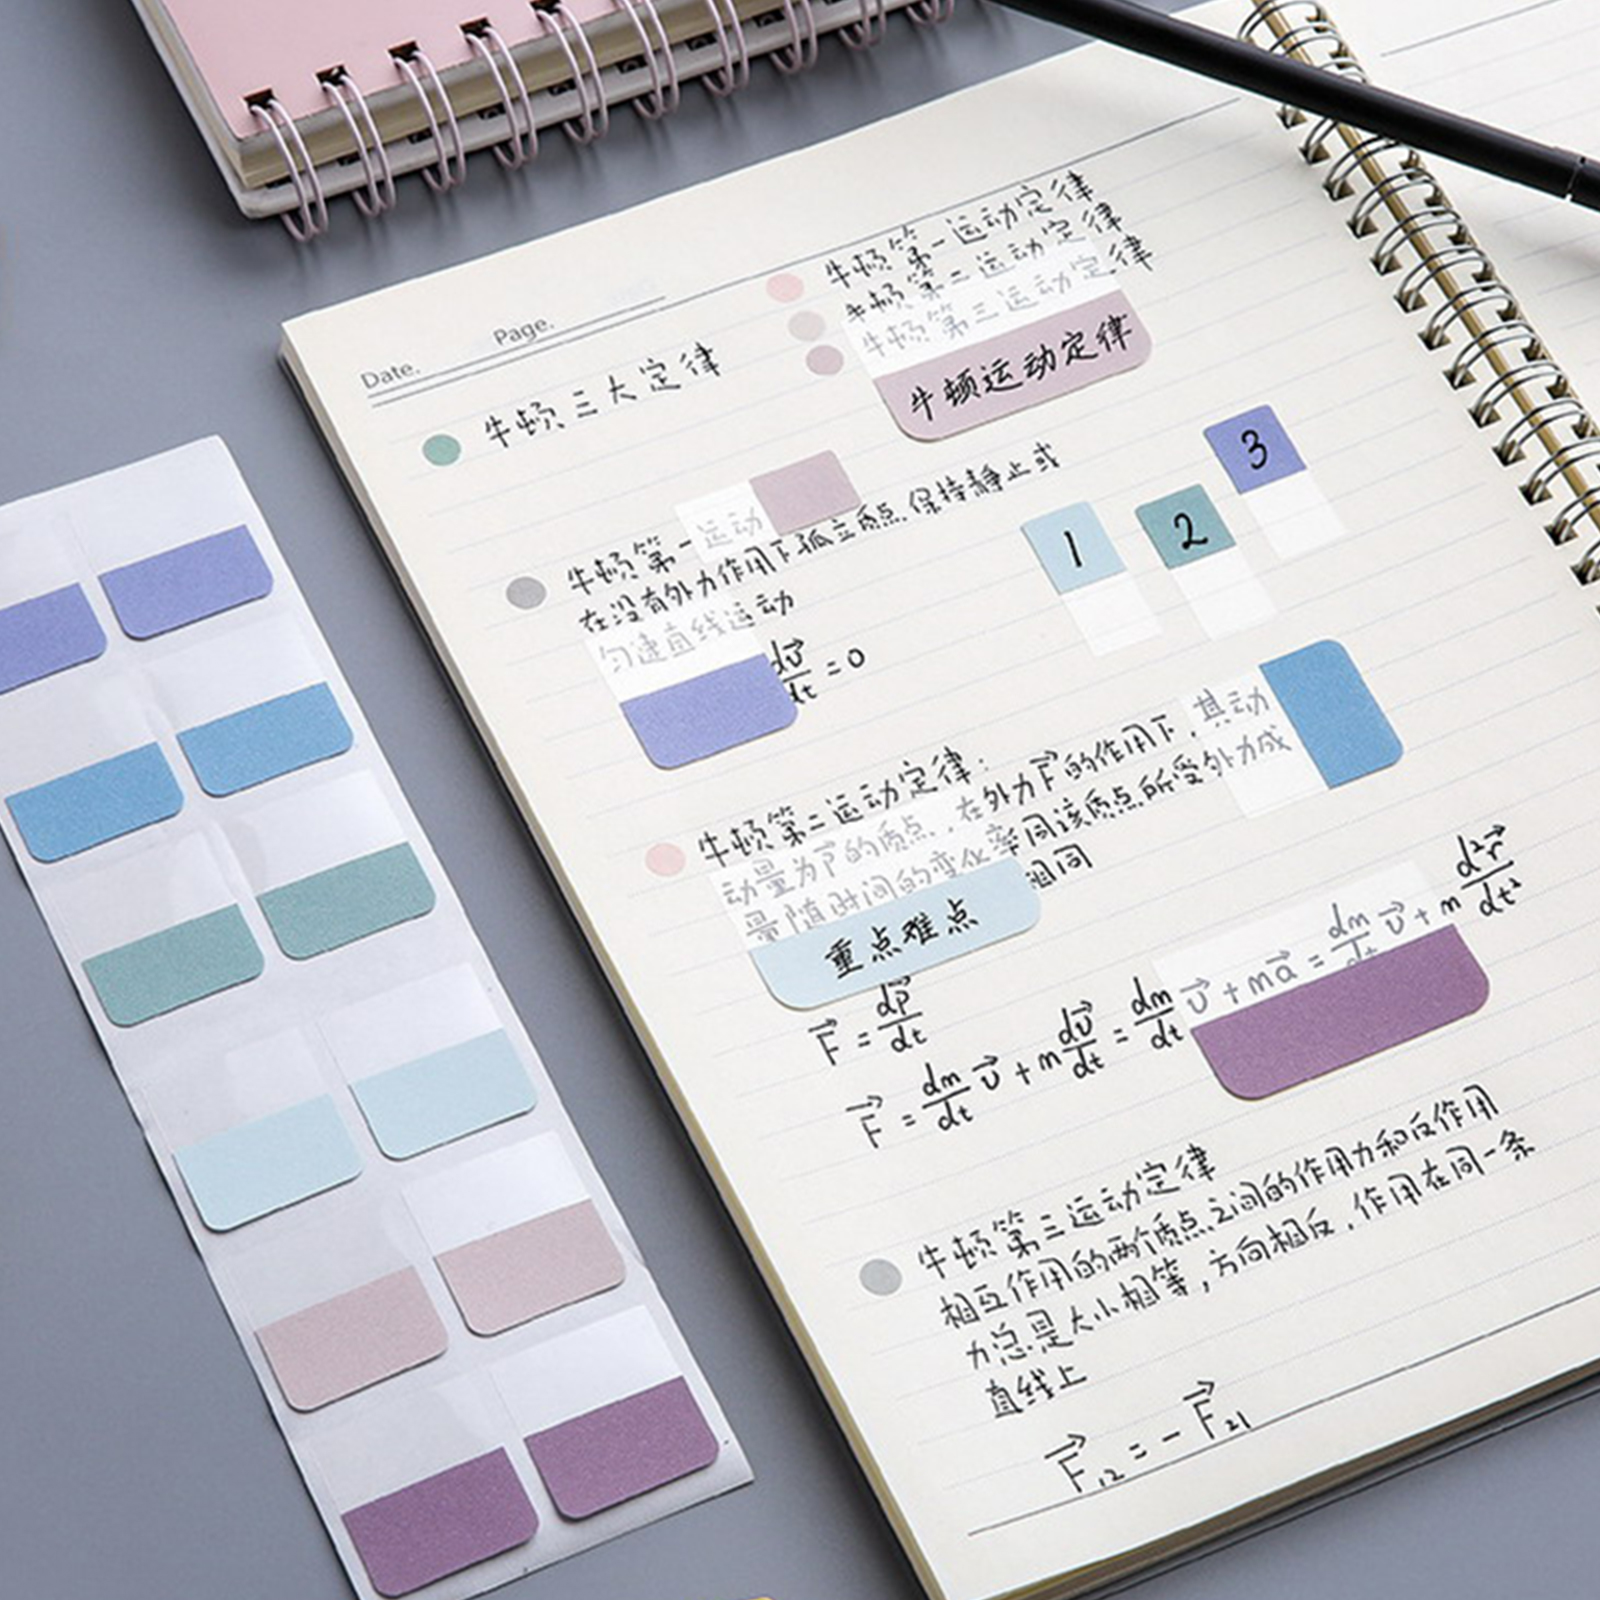 Date.
Page.
牛顿三大定律
牛顿第一运动定律
牛顿第二运动定律
牛顿第三运动定律
牛顿运动定律
1
2
3
牛顿第一运动
在没有外力作用下孤立质点保持静止或
匀速直线运动
dv⃗/dt = 0
牛顿第二运动定律：
动量为p⃗的质点，在外力F⃗的作用下，其动
量随时间的变化率同该质点所受外力成
相同
重点难点
F⃗ = dp⃗/dt
F⃗ = dm/dt v⃗ + m dv⃗/dt = dm/dt v⃗ + ma⃗ = dm/dt v⃗ + m d²r⃗/dt²
牛顿第三运动定律
相互作用的两个质点之间的作用力和反作用
力总是大小相等，方向相反，作用在同一条
直线上
F⃗₁₂ = - F⃗₂₁